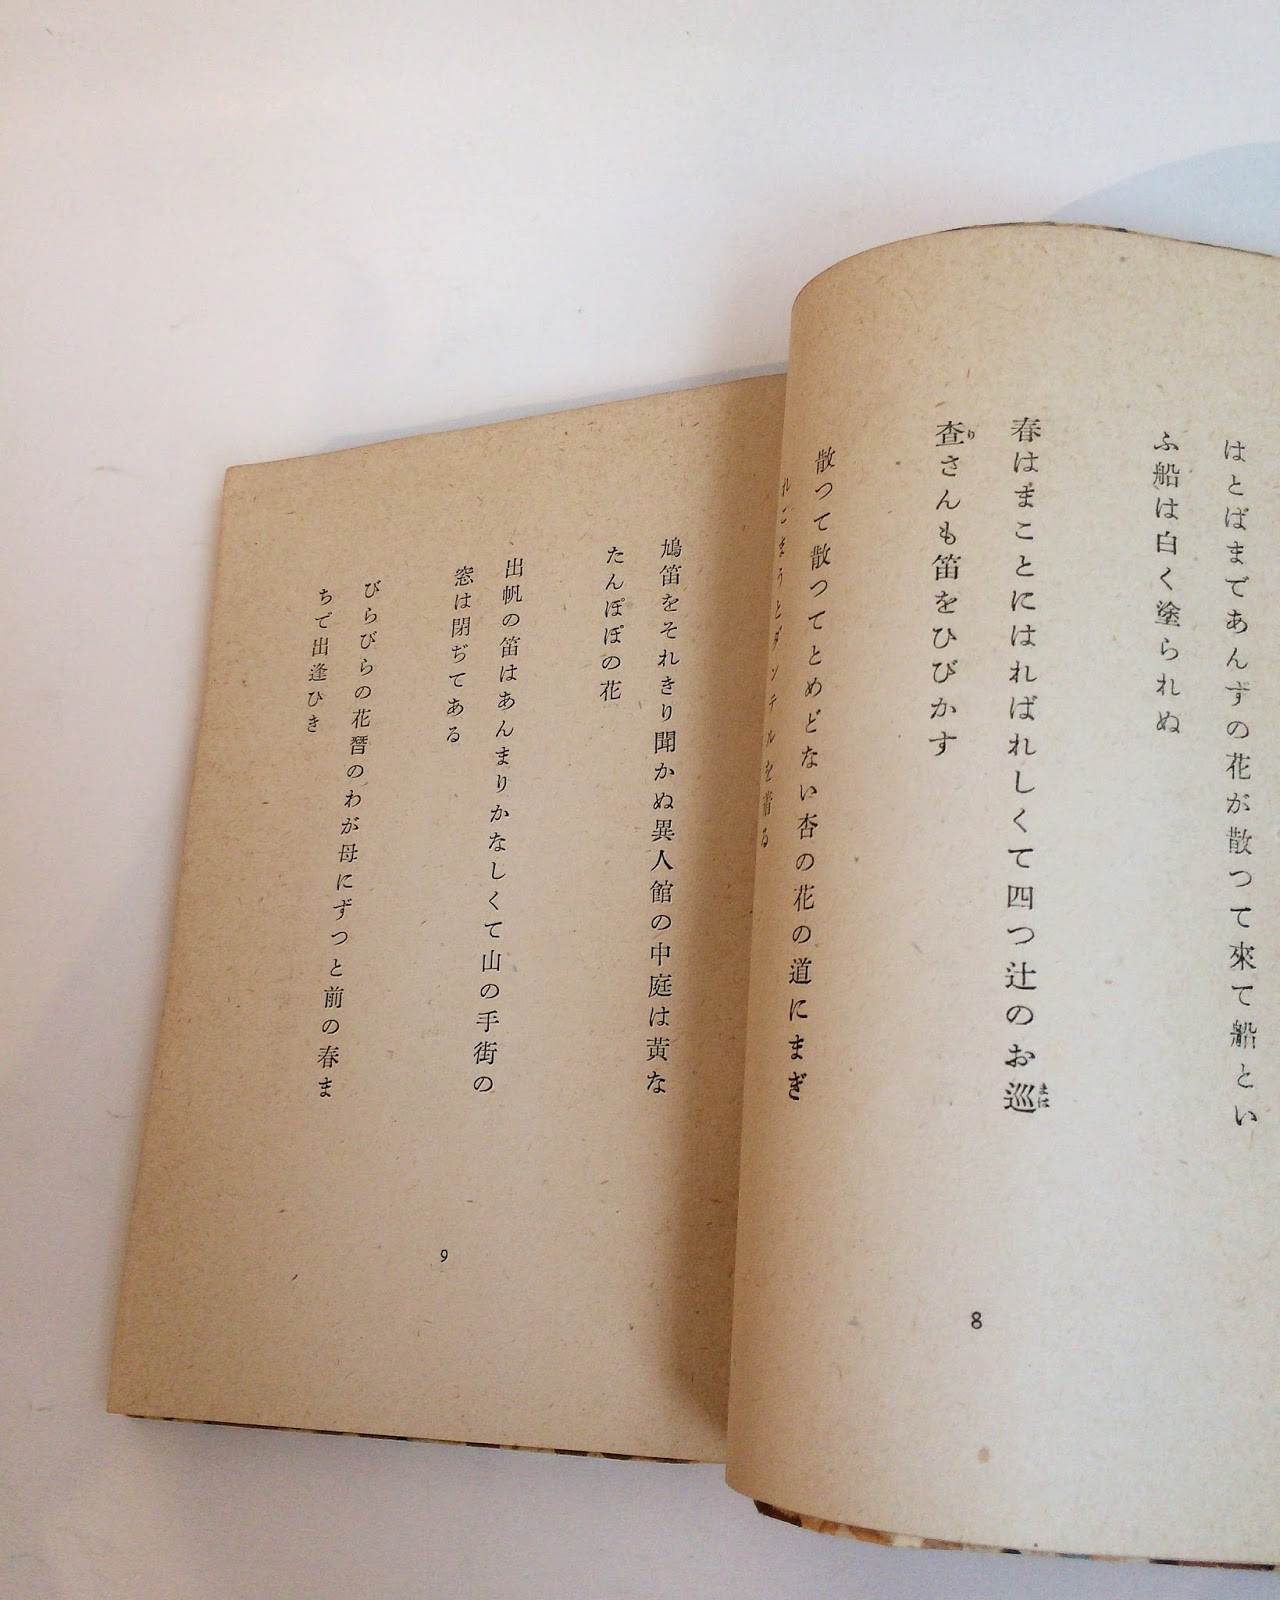 はとばまであんずの花が散つて來て船とい
ふ船は白く塗られぬ
春はまことにはればれしくて四つ辻のお巡まは
査りさんも笛をひびかす
散つて散つてとめどない杏の花の道にまぎ
れこまうとダンテルを着る
8
鳩笛をそれきり聞かぬ異人館の中庭は黃な
たんぽぽの花
出帆の笛はあんまりかなしくて山の手街の
窓は閉ぢてある
びらびらの花簪のわが母にずつと前の春ま
ちで出逢ひき
9